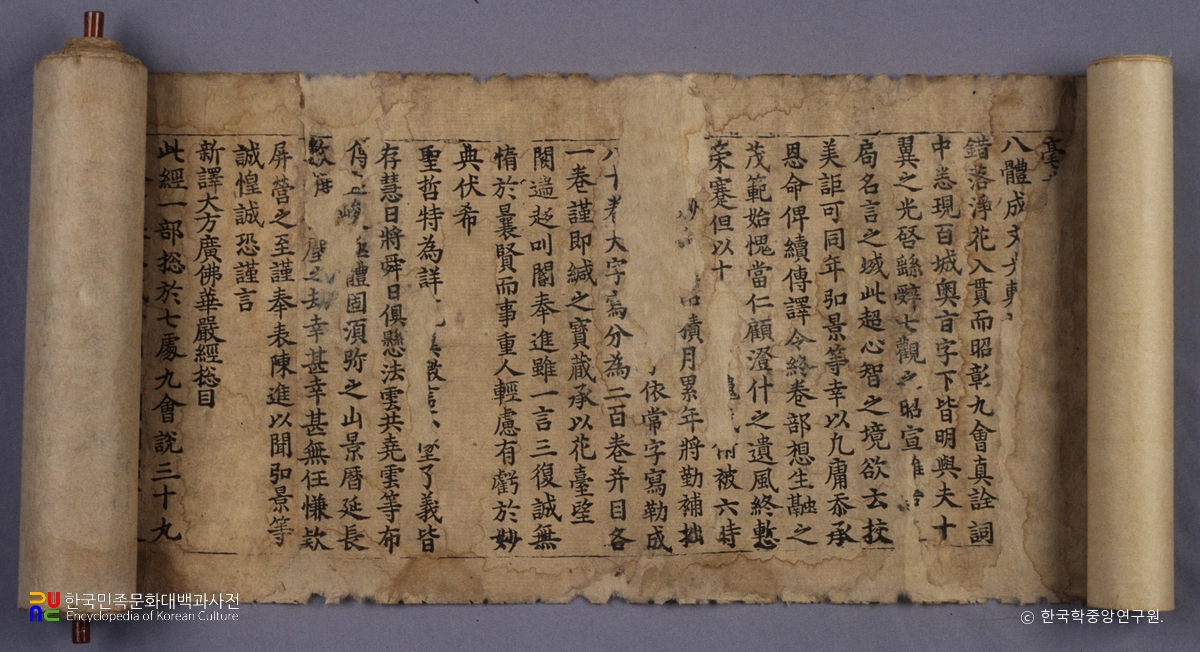 八體成
錯落浮花入貫而昭彰九會真詮詞
中悉現百城奧言字下皆明與夫十
翼之光啓繇辭七觀之昭宣
局名言之域此超心智之境欲去挍
美詎可同年弘景等幸以九庸忝承
恩命俾續傳譯令終卷部想生融之
茂範始愧當仁顧澄什之遺風終慙
榮寋但以十 被六時
績月累年將勤補拙
依常字寫勒成
八十 大字寫分為二百卷并目各
一卷謹即緘之寶蔵承以花臺望
闕遥趍叫閽奉進雖一言三復誠無
惰於曩賢而事重人輕慮有虧於妙
典伏希
聖哲特為詳 了義皆
存慧日將舜日俱懸法雲共堯雲等布
體固湏弥之山景曆延長
之劫幸甚幸甚無任慊欵
屏營之至謹奉表陳進以聞弘景等
誠惶誠恐謹言
新譯大方廣佛華嚴經捴目
此經一部捴於七處九會說三十九
한국민족문화대백과사전
Encyclopedia of Korean Culture
© 한국학중앙연구원.